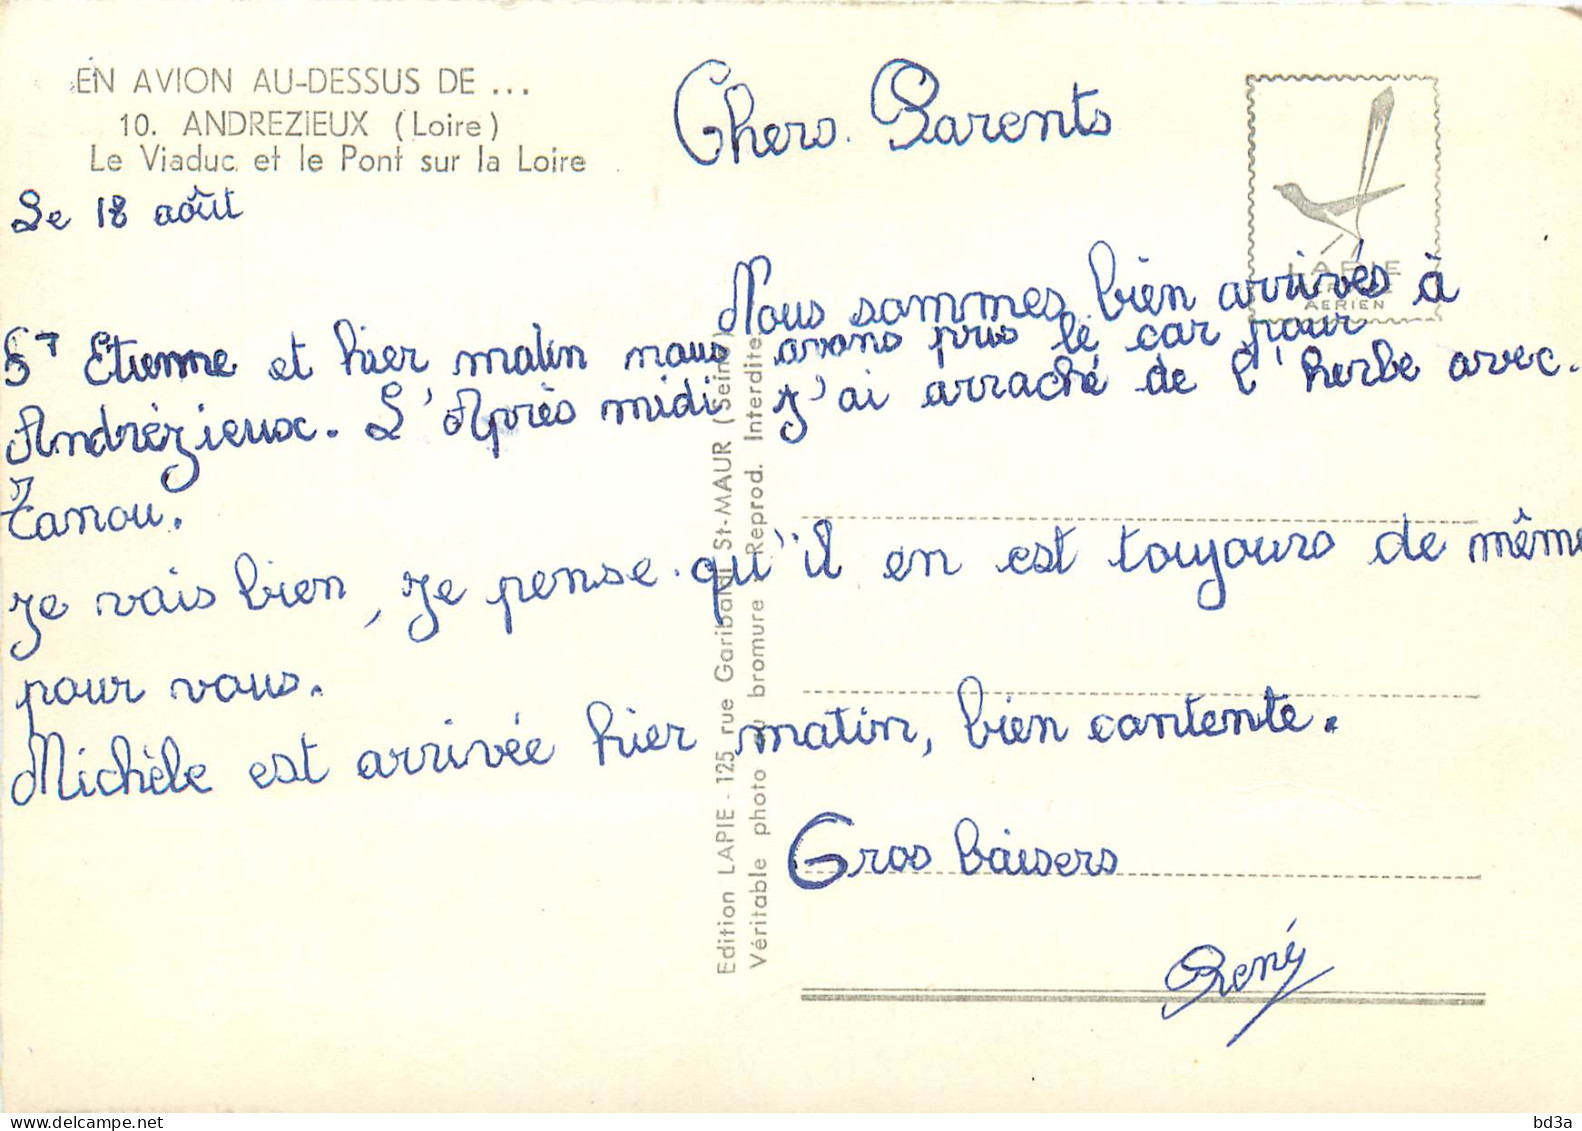 EN AVION AU-DESSUS DE ...
10. ANDREZIEUX (Loire)
Le Viaduc et le Pont sur la Loire
Le 18 août
Chers Parents
Nous sommes bien arrivés à
St Etienne et hier matin nous avons pris le car pour
Andrézieux. L'Après midi J'ai arraché de l'herbe avec
Tanou.
Je vais bien, Je pense qu'il en est toujours de même
pour vous.
Michèle est arrivée hier matin, bien contente.
Gros baisers
René
LAPIE
AERIEN
Edition LAPIE - 125 rue Garibaldi St-MAUR (Seine)
Véritable photo au bromure - Reprod. Interdite
delcampe.net
bd3a